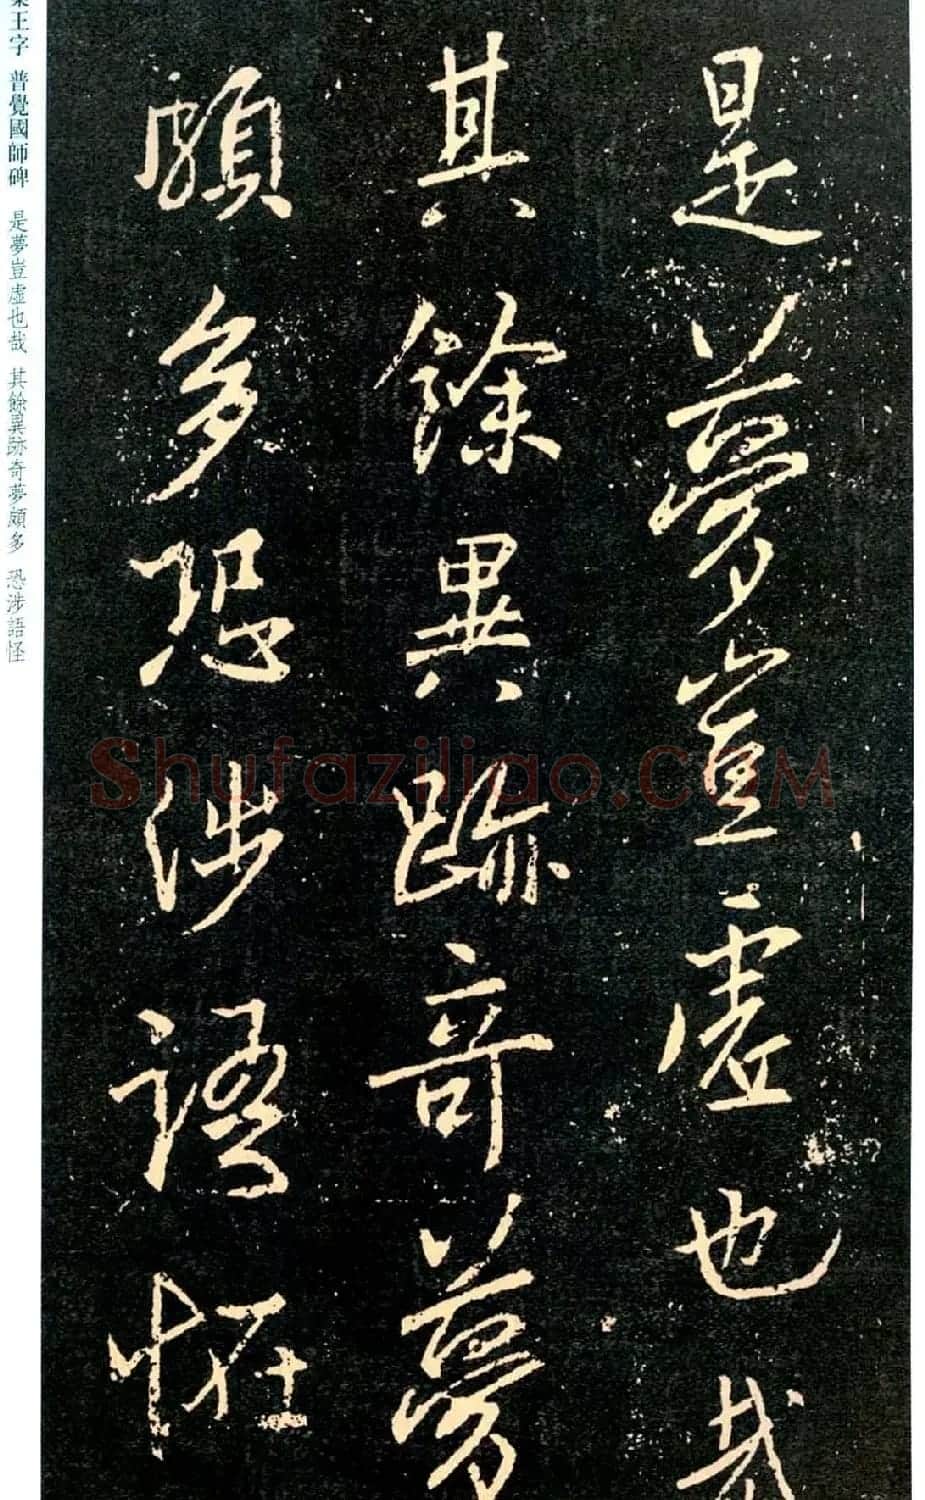 是夢豈虛也哉
其餘異跡奇夢
頗多恐涉語怪
集王字 普覺國師碑 是夢豈虛也哉 其餘異跡奇夢頗多 恐涉語怪
Shufaziliao.COM